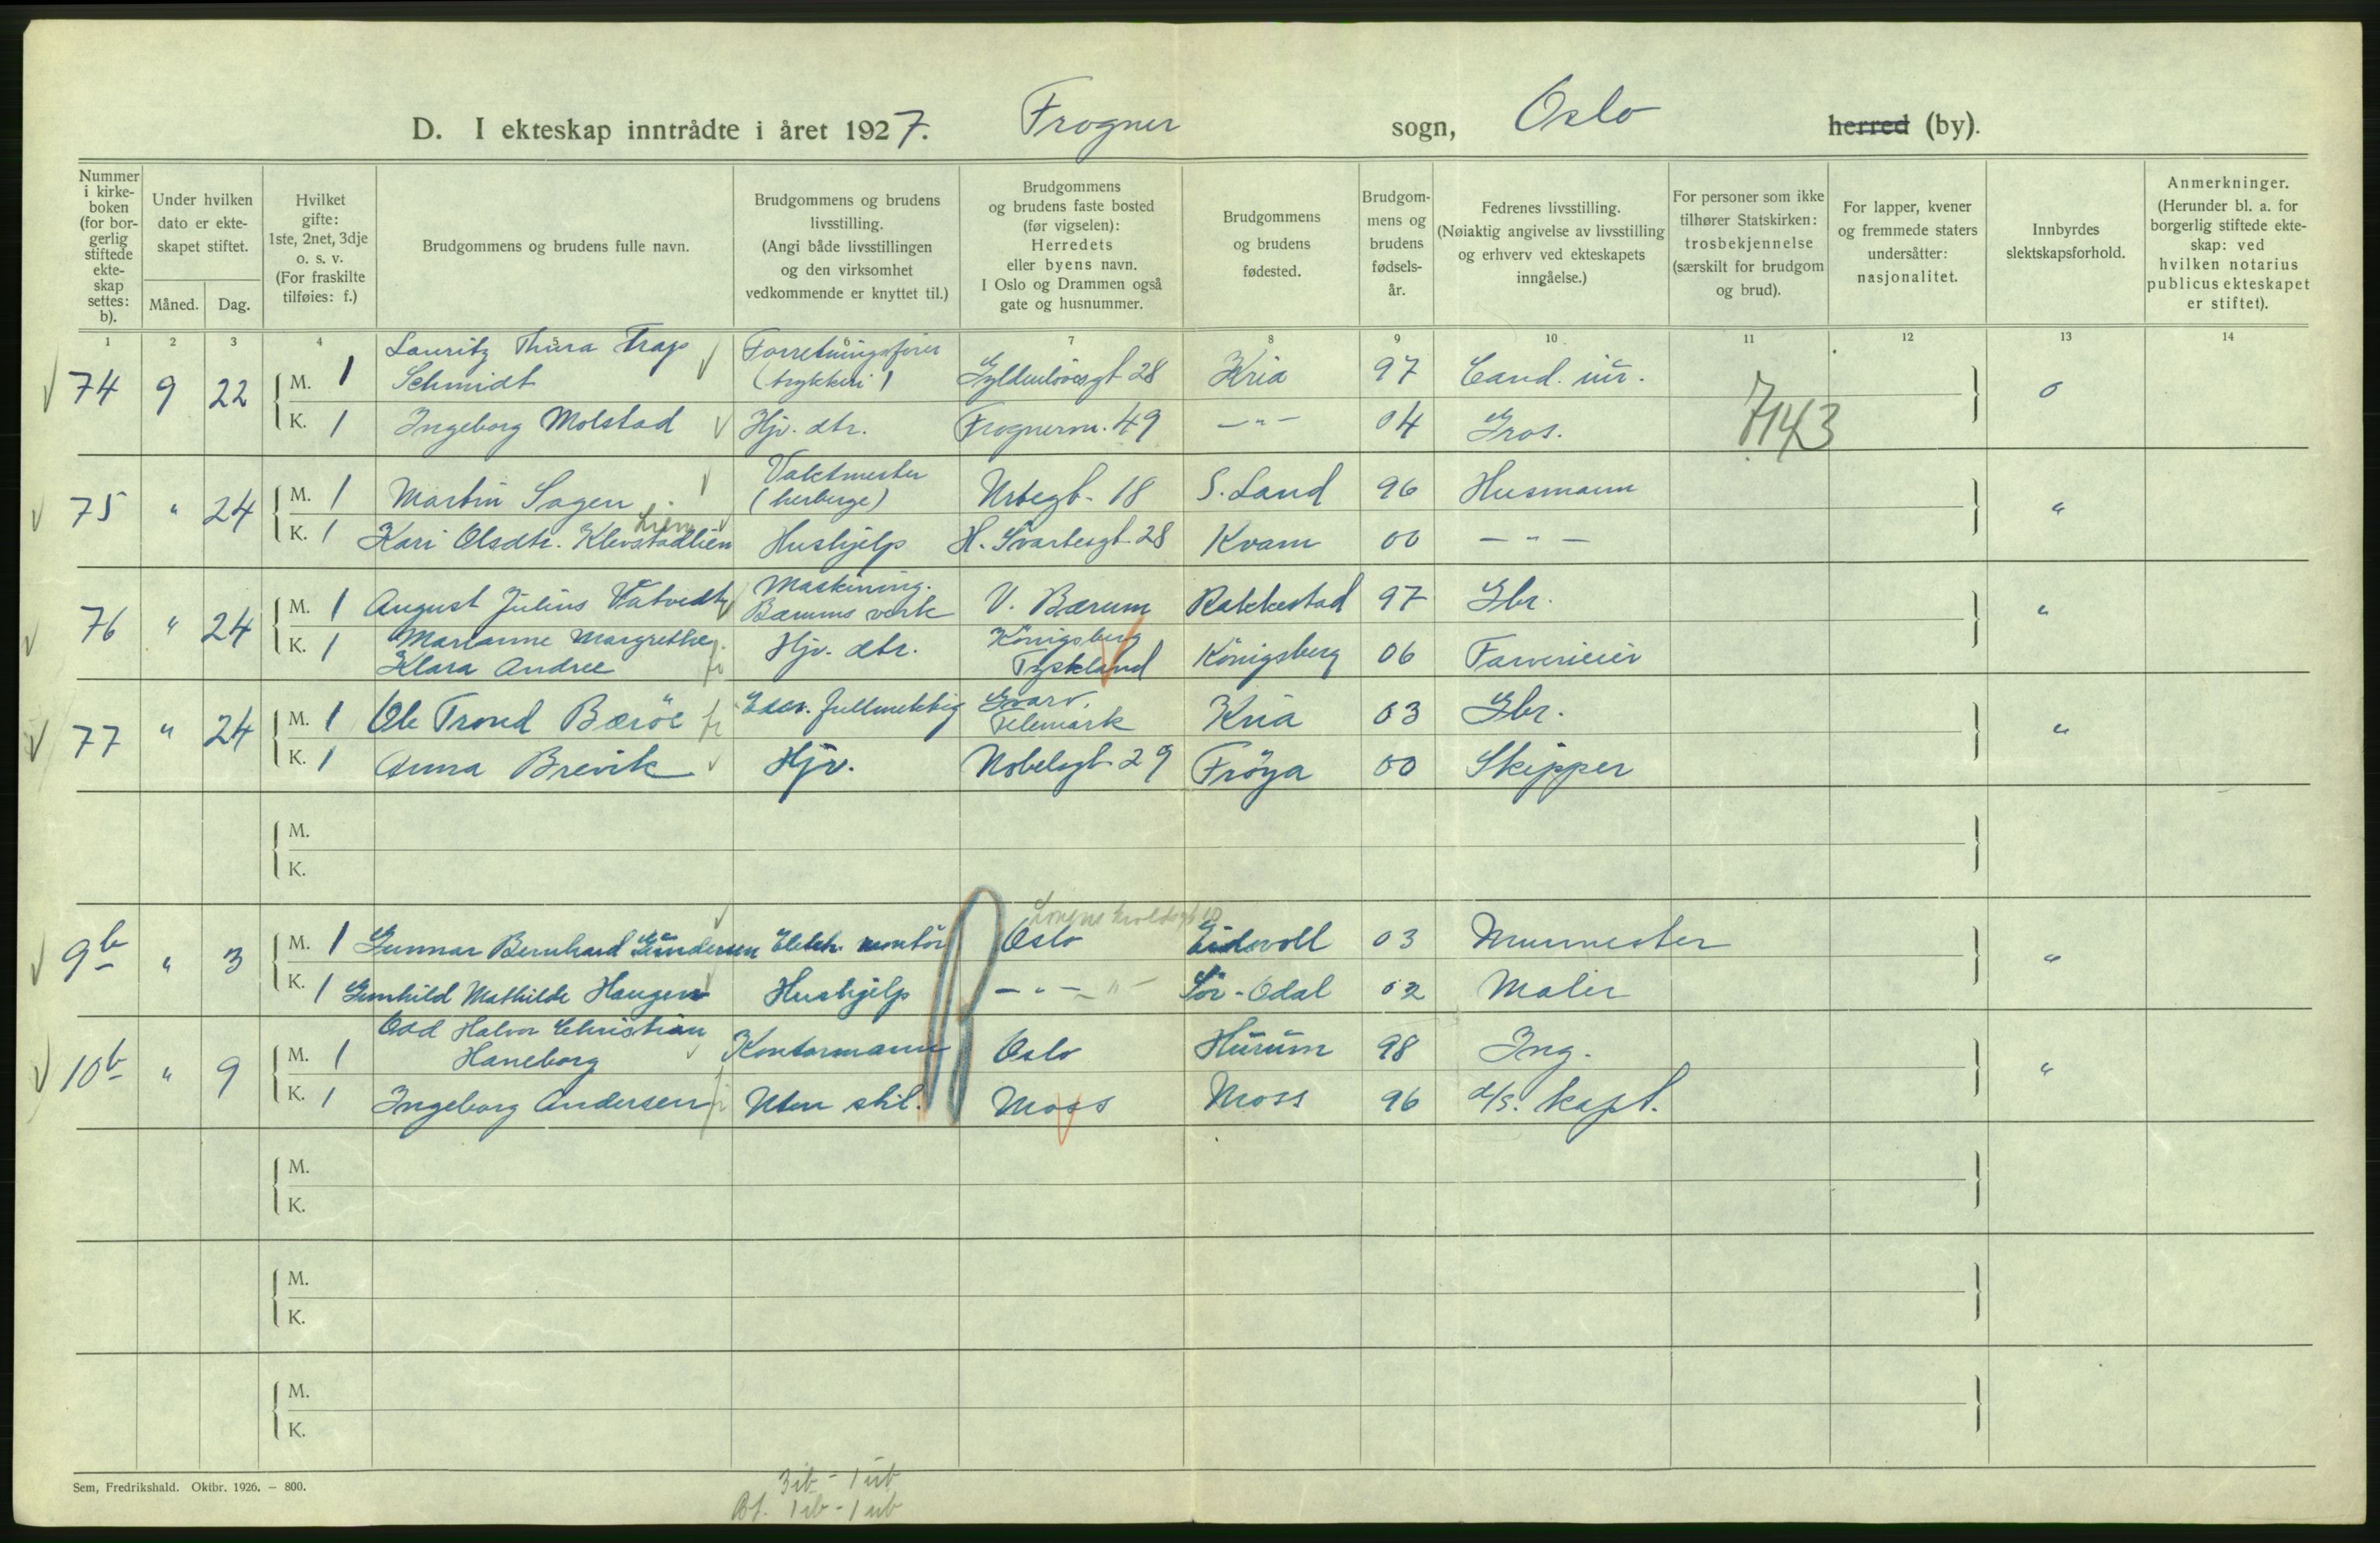 D. I ekteskap inntrådte i året 1927. Frogner sogn, Oslo herred (by).
Nummer i kirke-boken (for bor-gerlig stiftede ekte-skap settes: b).
Under hvilken dato er ekte-skapet stiftet.
Måned. Dag.
Hvilket gifte: 1ste, 2net, 3dje o. s. v. (For fraskilte tilføies: f.)
Brudgommens og brudens fulle navn.
Brudgommens og brudens livsstilling. (Angi både livsstillingen og den virksomhet vedkommende er knyttet til.)
Brudgommens og brudens faste bosted (før vigselen): Herredets eller byens navn. I Oslo og Drammen også gate og husnummer.
Brudgommens og brudens fødested.
Brudgom-mens og brudens fødsels-år.
Fedrenes livsstilling. (Nøiaktig angivelse av livsstilling og erhverv ved ekteskapets inngåelse.)
For personer som ikke tilhører Statskirken: trosbekjennelse (særskilt for brudgom og brud).
For lapper, kvener og fremmede staters undersåtter: nasjonalitet.
Innbyrdes slektskapsforhold.
Anmerkninger. (Herunder bl. a. for borgerlig stiftede ekte-skap: ved hvilken notarius publicus ekteskapet er stiftet).
1 2 3 4 7 8 9 10 11 12 13 14
74 9 22 M. 1 Lauritz Thura Trap Schmidt Forretningsfører (trykkeri) Gyldenløvesgt 28 Kria 97 Cand. jur. 0
K. 1 Ingeborg Molstad Hjv. dtr. Frognervn. 49 — " — 04 Gros. 7143
75 " 24 M. 1 Martin Sagen Vaktmester (herberge) Urtegt. 18 S. Land 96 Husmann "
K. 1 Kari Olsdtr. Klevstadlien Lien Hushjelp H. Svartesgt. 28 Kvam 00 — " —
76 " 24 M. 1 August Julius Vatvedt Maskining. Bærums verk V. Bærum Rakkestad 97 Gbr. "
K. 1 Marianne Margrethe Klara Andree Hjv. dtr. Königsberg Tyskland Königsberg 06 Farverieier
77 " 24 M. 1 Ole Trond Bærøe fr fullmektig Gvarv, Telemark Kria 03 Gbr. "
K. 1 Anna Brevik Hjv. Nobelsgt 29 Frøya 00 Skipper
M.
K.
9b " 3 M. 1 Gunnar Bernhard Gundersen Elektr. montør Oslo Eidsvoll 03 Murmester "
K. 1 Gunhild Mathilde Haugen Hushjelp — " — Sør-Odal 02 Maler
10b " 9 M. 1 Odd Halvor Christian Haneborg Kontormann Oslo Hurum 98 Ing. "
K. 1 Ingeborg Andersen fr Uten stil. Moss Moss 96 d/s. kapt.
M.
K.
M.
K.
M.
K.
Sem, Fredrikshald. Oktbr. 1926. — 800.
3 ib - 1 ub
Bf. 1 ib - 1 ub